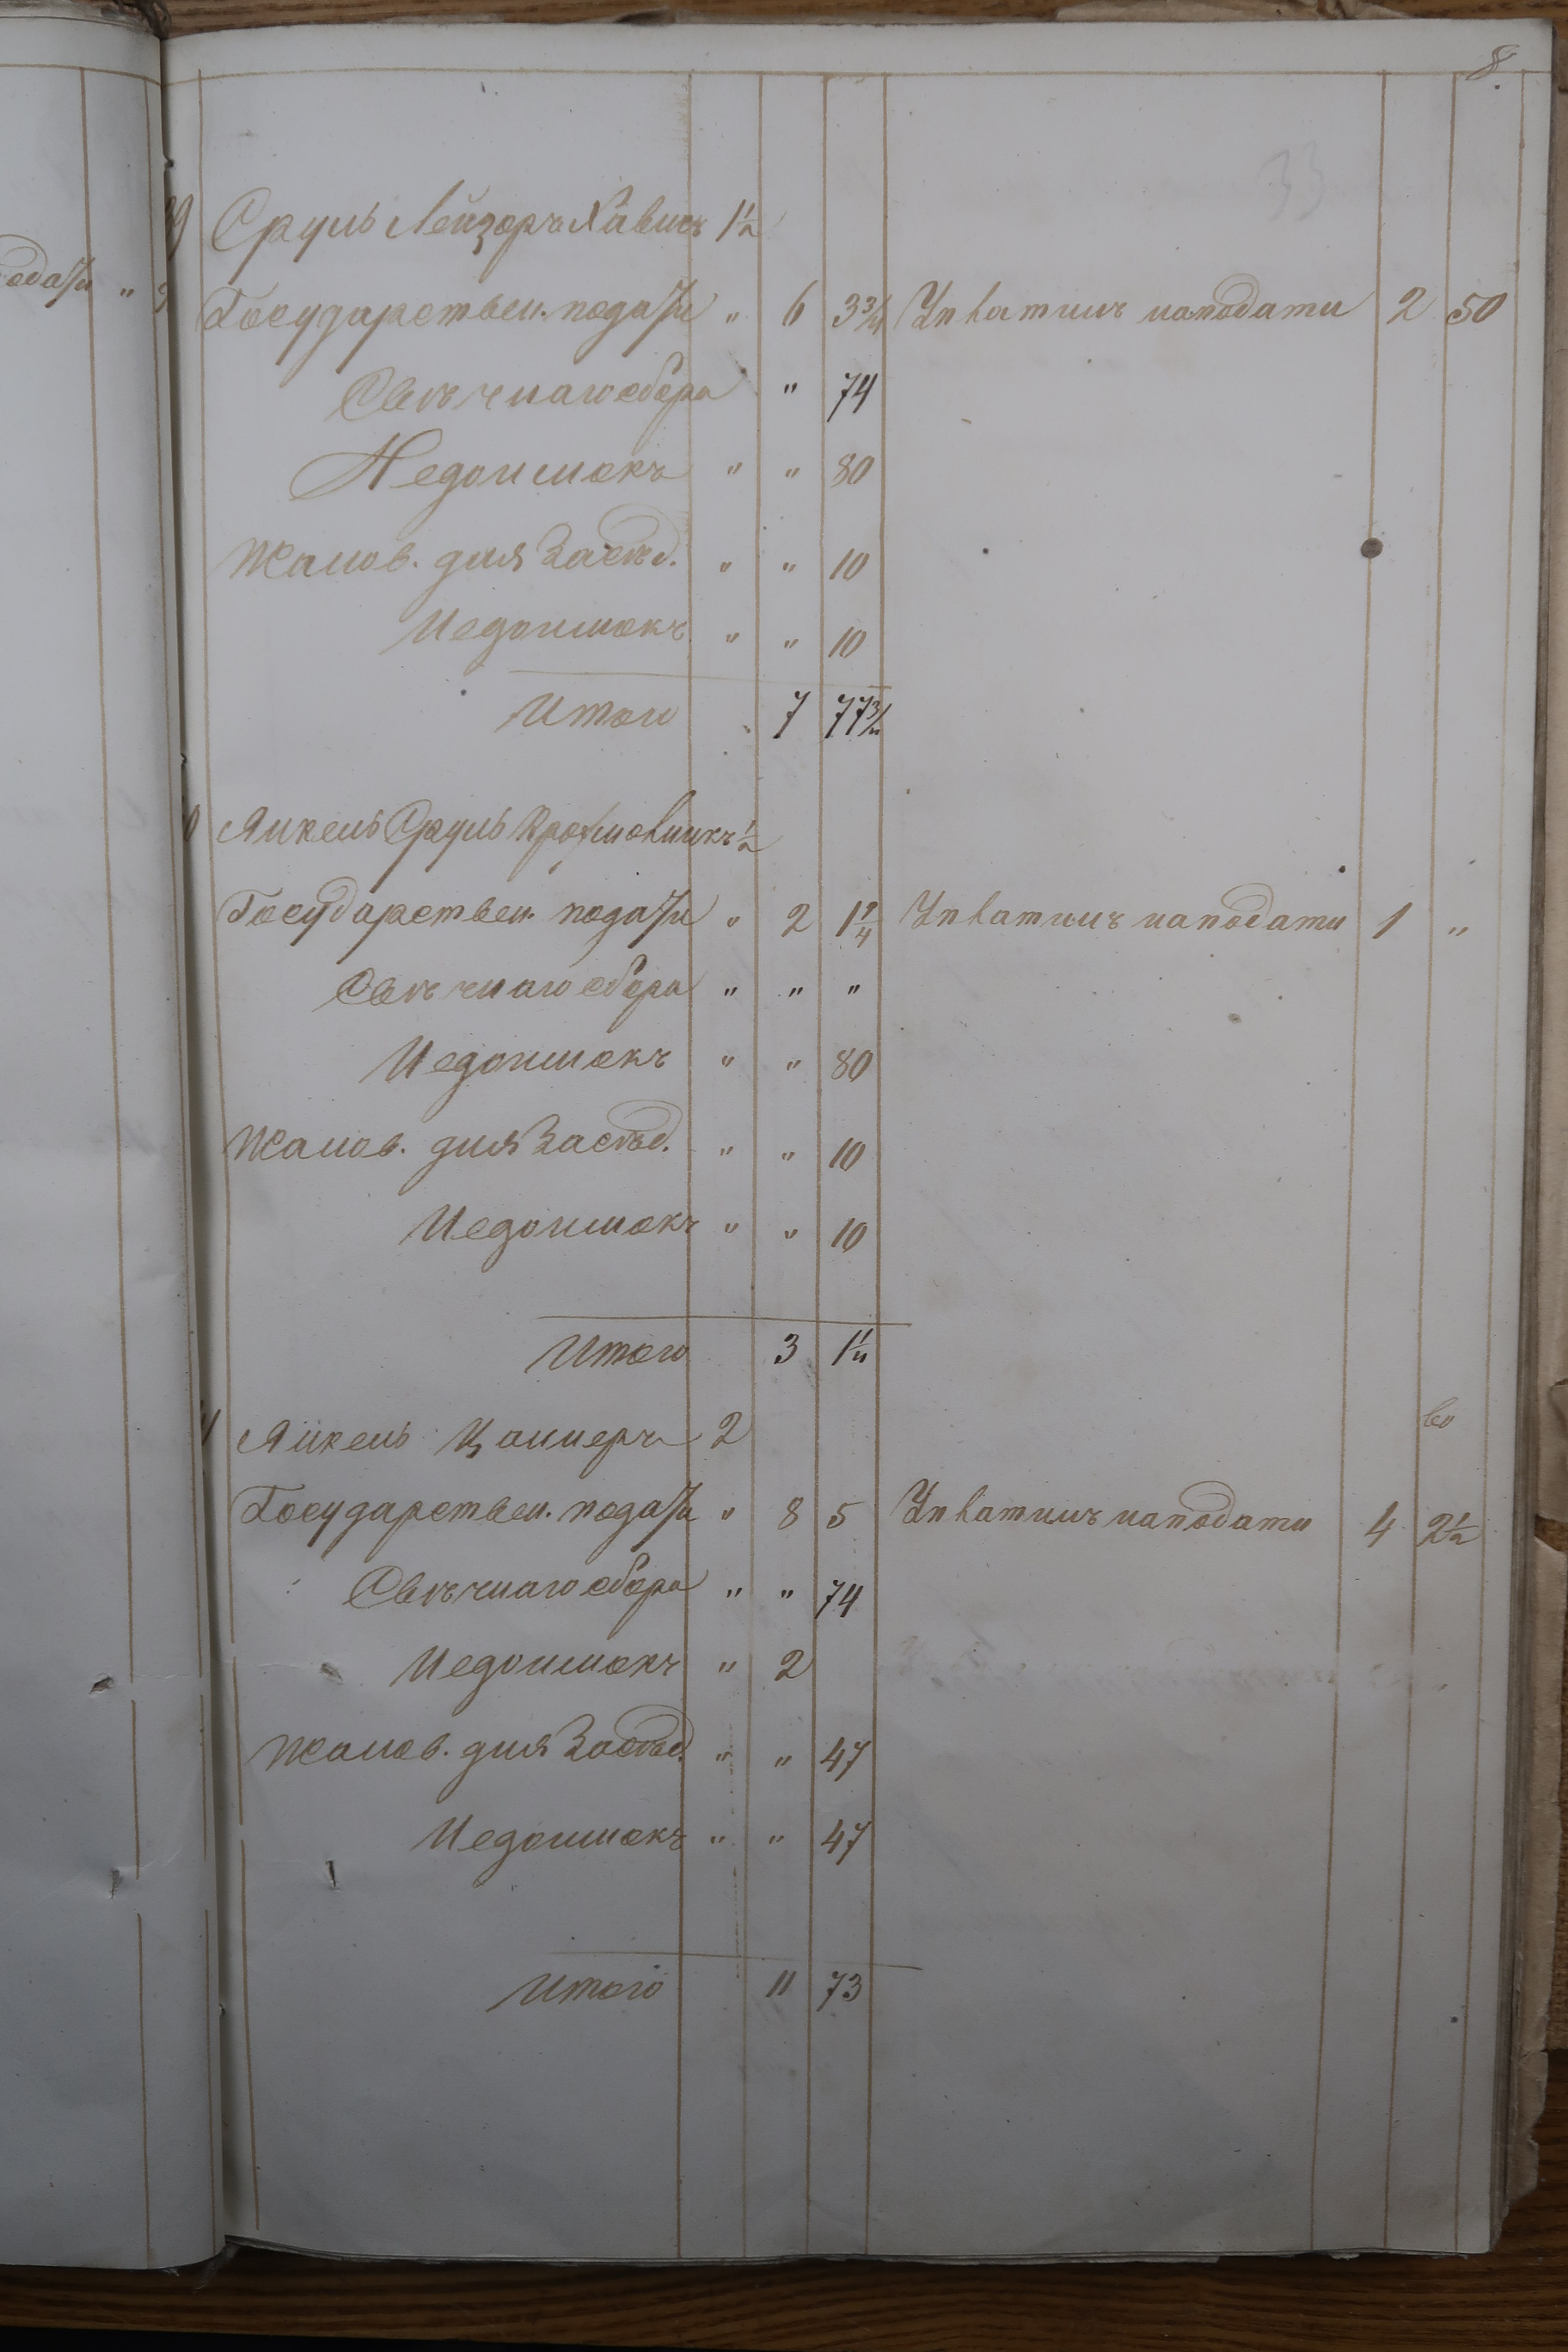 8.
33
9 Сруль Лейзеръ Хависъ 1½
Государствен. подати " 6 3¾ Уплатилъ на подати 2 50
Свѣчнаго сбора " 74
Недоимокъ " " 80
Жалов. для Засѣд. " " 10
Недоимокъ " " 10
Итого 7 77¾
0 Янкель Сруль ½
Государствен. подати " 2 1¼ Уплатилъ на подати 1 "
Свѣчнаго сбора " " "
Недоимокъ " " 80
Жалов. для Засѣд. " " 10
Недоимокъ " " 10
Итого 3 1¼
Янкель Цаллеръ 2
Государствен. подати " 8 5 Уплатилъ на подати 4 2½
Свѣчнаго сбора " " 74
Недоимокъ " 2
Жалов. для Засѣд. " " 47
Недоимокъ " " 47
Итого 11 73
одати "